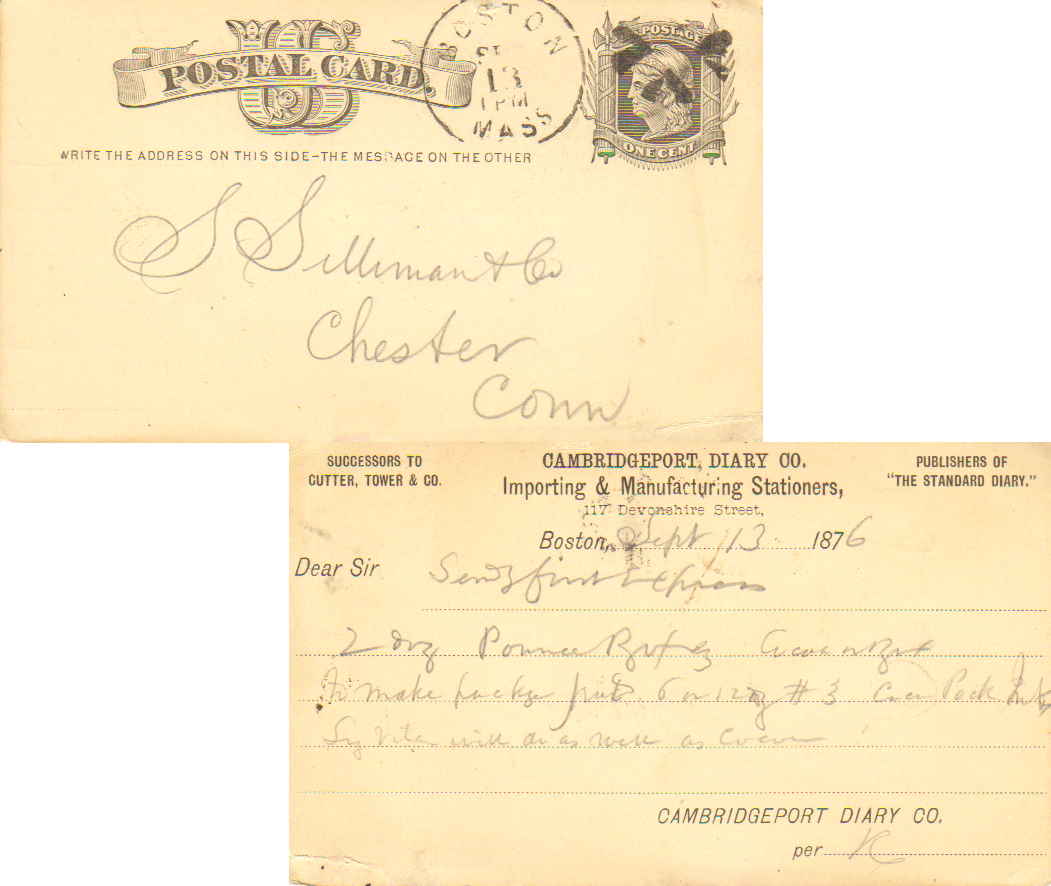 US
POSTAL CARD.
BOSTON
13
1 PM
MASS
POSTAGE
ONE CENT
WRITE THE ADDRESS ON THIS SIDE-THE MESSAGE ON THE OTHER
S Silliman & Co
Chester
Conn
SUCCESSORS TO
CUTTER, TOWER & CO.
CAMBRIDGEPORT, DIARY CO.
Importing & Manufacturing Stationers,
117 Devonshire Street,
PUBLISHERS OF
"THE STANDARD DIARY."
Boston, Sept 13 1876
Dear Sir Send first Express
2 doz Pounce Boxes
To make package put 6 or 12 #3 Pock Inks
will do as well as Cocoa
CAMBRIDGEPORT DIARY CO.
per K